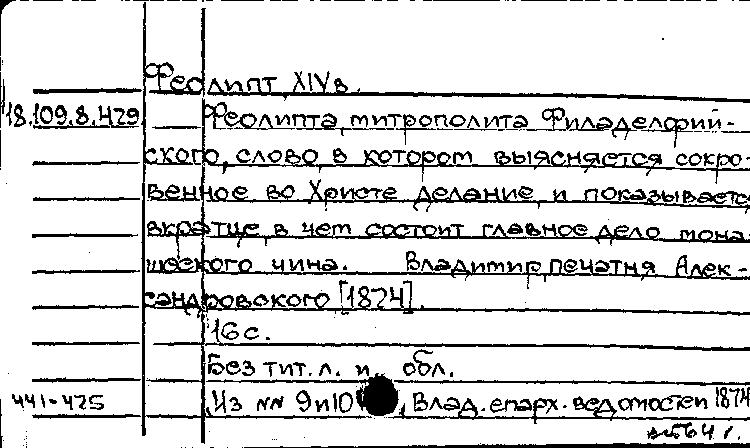 Феолипт, XIV в.
18.109.8.429. Феолипта, митрополита Филаделфий-
ского, слово, в котором выясняется сокро-
венное во Христе делание, и показывается
вкратце, в чем состоит главное дело мона-
шеского чина. Владимир, печатня Алек-
сандровского [1874].
16 с.
Без тит. л. и обл.
441-425 Из №№ 9 и 10 , Влад. епарх. ведомостей 1874